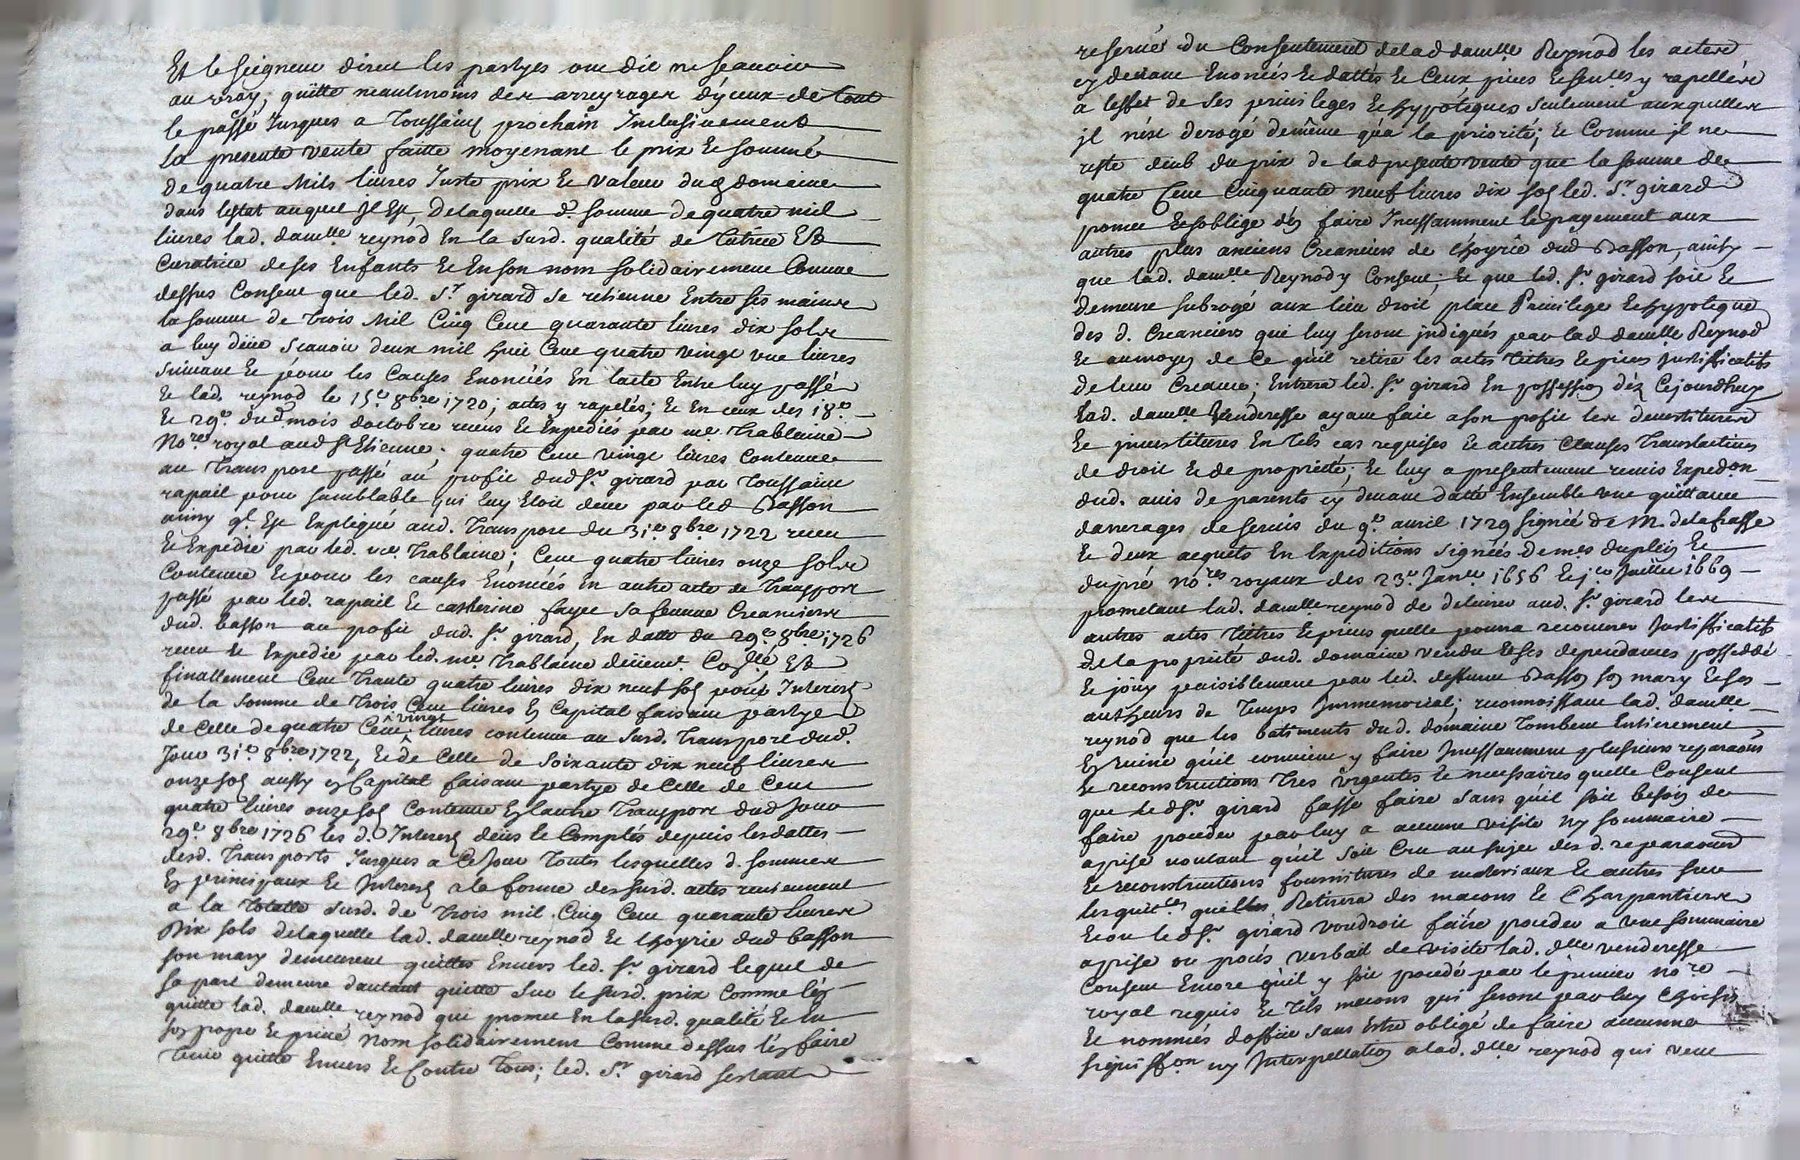 Et le seigneur direct les partyes ont dit ne scavoir
au vray; quitte neantmoins des arreyrages d'yceux de tout
le passé Jusques a Toussaint prochain Inclusivement
la presente vente faitte moyenant le prix et somme
de quatre Mils livres Juste prix et valeur dud domaine
dans lestat auquel Il Est, delaquelle d. somme de quatre mil
livres lad. damlle reynod En la Surd. qualité de tutrice Et
Curatrice de ses Enfants et En son nom solidairement Comme
dessus Consent que led. Sr girard se retienne Entre ses mains
la somme de Trois Mil Cinq Cent quarante livres dix sols
a luy deüe scavoir deux mil huit Cent quatre vingt une livres
suivant et pour les Causes Enoncées En lacte Entre luy passé
Et lad. reynod le 15e 8bre 1720; actes y rapelés; et En ceux des 18e
Et 29e dud mois doctobre receus et Expediés par me Trablaine
Nore royal aud St Etienne; quatre Cent vingt livres contenue
au Transport passé au profit dud Sr girard par Toussaint
rapail pour semblable qui luy Etoit deue par led Basson
ainsy ql Est Expliqué aud. Transport du 31e 8bre 1722 receu
Et Expedié par led. me Trablaine; Cent quatre livres onze sols
Contenue et pour les causes Enoncées En autre acte de Transport
passé par led. rapail et catherine fayet sa femme Creanciers
dud. basson au profit dud. Sr girard, En datte du 29e 8bre 1726
receu et Expedié par led. me Trablaine deüemt Collé, Et
finallement Cent Trante quatre livres dix neuf sols pour Interest
de la somme de Trois Cent livres En Capital faisant partye
de celle de quatre Cent vingt livres contenue au Surd. Transport dud.
Jour 31e 8bre 1722, Et de Celle de soixante dix neuf livres
onze sols aussy en Capital faisant partye de Celle de Cent
quatre livres onze sols Contenue En lautre Transport dud jour
29e 8bre 1726 les d. Interest deüs et Comptés depuis les dattes
desd. Transports Jusques a Ce Jour Toutes lesquelles d. sommes
En principaux et Interest a la forme des surd. actes reviennent
a la Totalle surd. de Trois mil Cinq Cent quarante livres
Dix sols delaquelle lad. damlle reynod et lhoyrie dud basson
son mary demeurent quittes Envers led. Sr girard lequel de
sa part demeure dautant quitte sur le surd. prix Comme len
quitte lad. damlle reynod qui promet En la Surd. qualité et En
son propre et privé Nom solidairement Comme dessus len faire
tenir quitte Envers et Contre Tous; led. Sr girard sestant
reservé du Consentement delad damlle Reynod les actes
cy devant Enoncés et dattés et Ceux pieces et suites y rapellées
a leffet de ses privileges et hypoteques seulement auxquelles
il n'est derogé de même qu'a la priorité; et Comme il ne
reste deub du prix de lad presente vente que la somme de
quatre Cent Cinquante neuf livres dix sols led. Sr girard
promet et soblige d'en faire Incessamment le payement aux
autres plus anciens Creanciers de lhoyrie dud Basson, ainsy
que lad. damlle Reynod y Consent; et que led. Sr girard soit et
demeure subrogé aux lieu droit place Privilege et hypoteque
des d. Creanciers qui luy seront indiqués par lad damlle Reynod
et au moyen de Ce qu'il retire les actes titres et pieces Justifficatifs
de leur Creance; Entrera led. Sr girard En possession dez Cejourdhuy
Lad. damlle Venderesse ayant fait a son profit les devestitures
et jnvestitures En tels cas requises et autres Clauses Translatives
de droit et de proprieté; et luy a presentement remis Expedon
dud. avis de parents cy devant datté Ensemble une quittance
darrerages de servis du 9e avril 1729 signée de M. delafrasse
et deux acquets En Expeditions signées de mes dupleix et
dupré nores royaux des 23e Janer 1656 et 1er Juillet 1669
prometant lad. damlle reynod de delivrer aud. Sr girard les
autres actes titres et pieces quelle pourra recouvrer Justifficatifs
de la proprieté dud. domaine vendu et ses dependances possedé
et jouy paisiblement par led. deffunt Basson son mary et ses
autheurs de Temps Immemorial; reconnoissant lad. damlle
reynod que les batiments dud. domaine Tombent Entierement
En ruine qu'il convient y faire Jncessamment plusieurs reparaons
et reconstructions Tres urgentes et necessaires quelle Consent
que led Sr girard fasse faire sans qu'il soit besoin de
faire proceder par luy a aucune visite ny sommaire
aprise voulant qu'il soit Cru au sujet des d. reparaons
et reconstructions fournitures de materiaux et autres sur
les quitces quelles Retirera des macons et Charpentiers
Et ou led Sr girard voudroit faire proceder a une sommaire
aprise ou procés verbail de visite lad. dlle venderesse
Consent Encore qu'il y soit procedé par le premier nore
royal requis et tels macons qui seront par luy choisis
et nommés doffice sans Estre obligé de faire aucunne
signiffon ny Interpellation a lad. dlle reynod qui veut